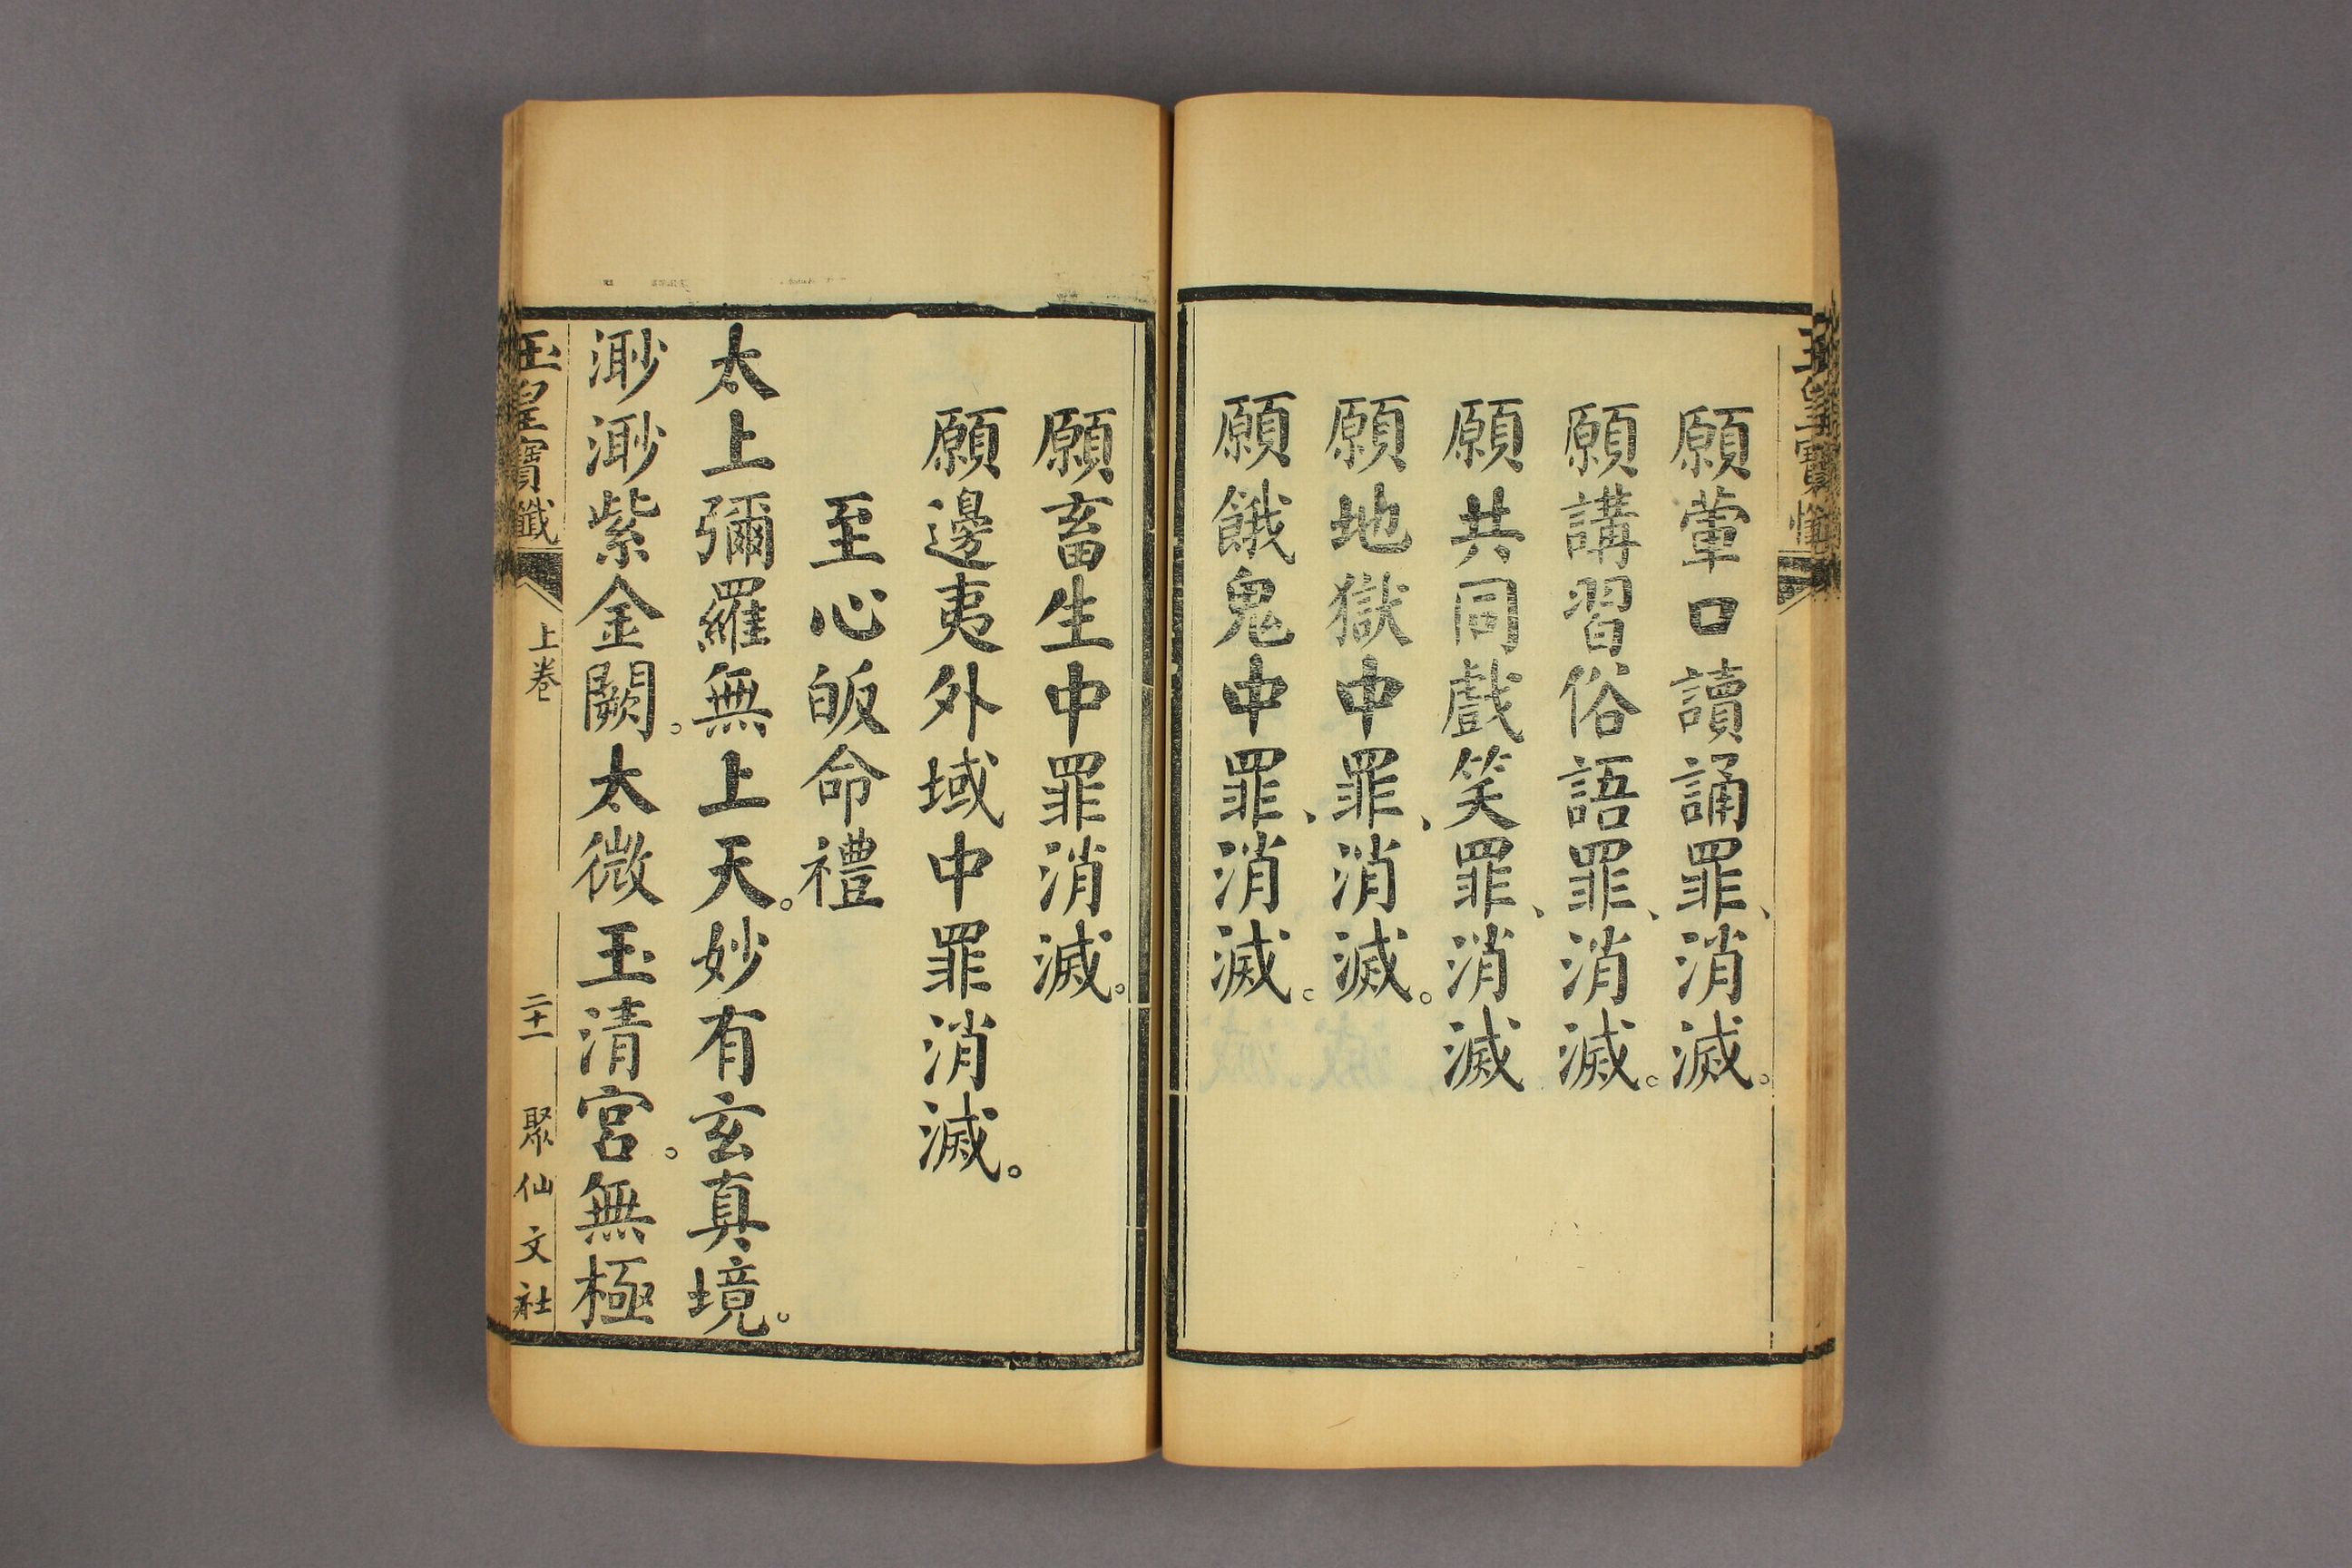 玉皇寶懺
願葷口讀誦罪、消滅。
願講習俗語罪、消滅。
願共同戲笑罪、消滅
願地獄中罪、消滅。
願餓鬼中罪、消滅。
願畜生中罪消滅。
願邊夷外域中罪消滅。
至心皈命禮
太上彌羅無上天。妙有玄真境。
渺渺紫金闕。太微玉清宮。無極
玉皇寶懺 上卷 二十一 聚仙文社